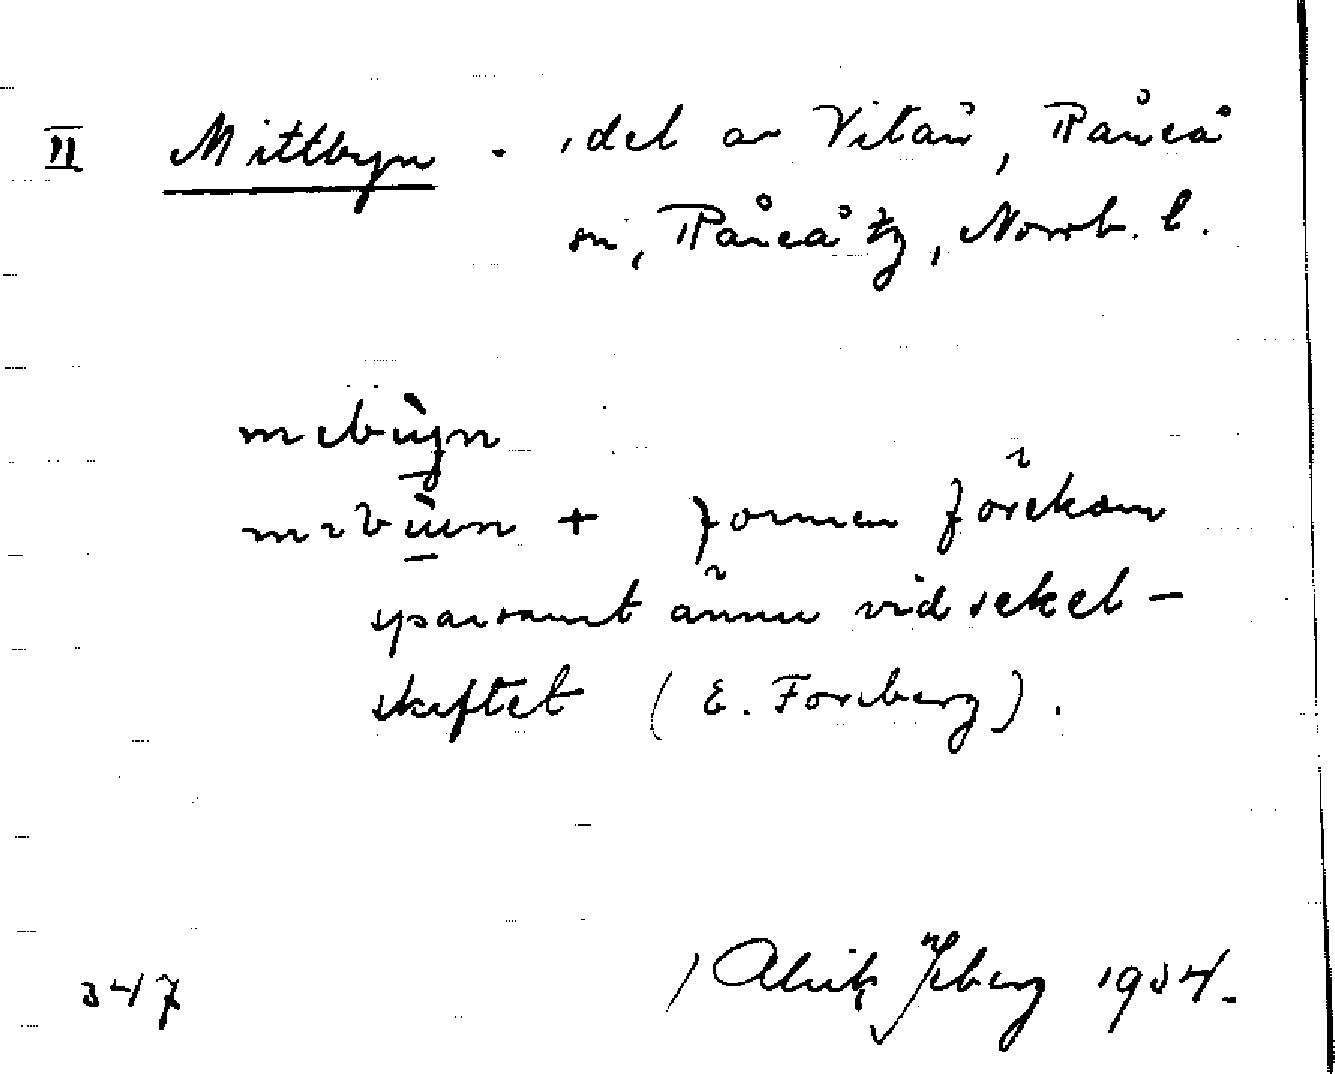 II Mittbyn - del av Vitån, Råneå
sn, Råneå tg, Norrb. l.
+ formen förekom
sparsamt ännu vid sekel-
skiftet (E. Forsberg).
347 Alrik Isberg 1934.